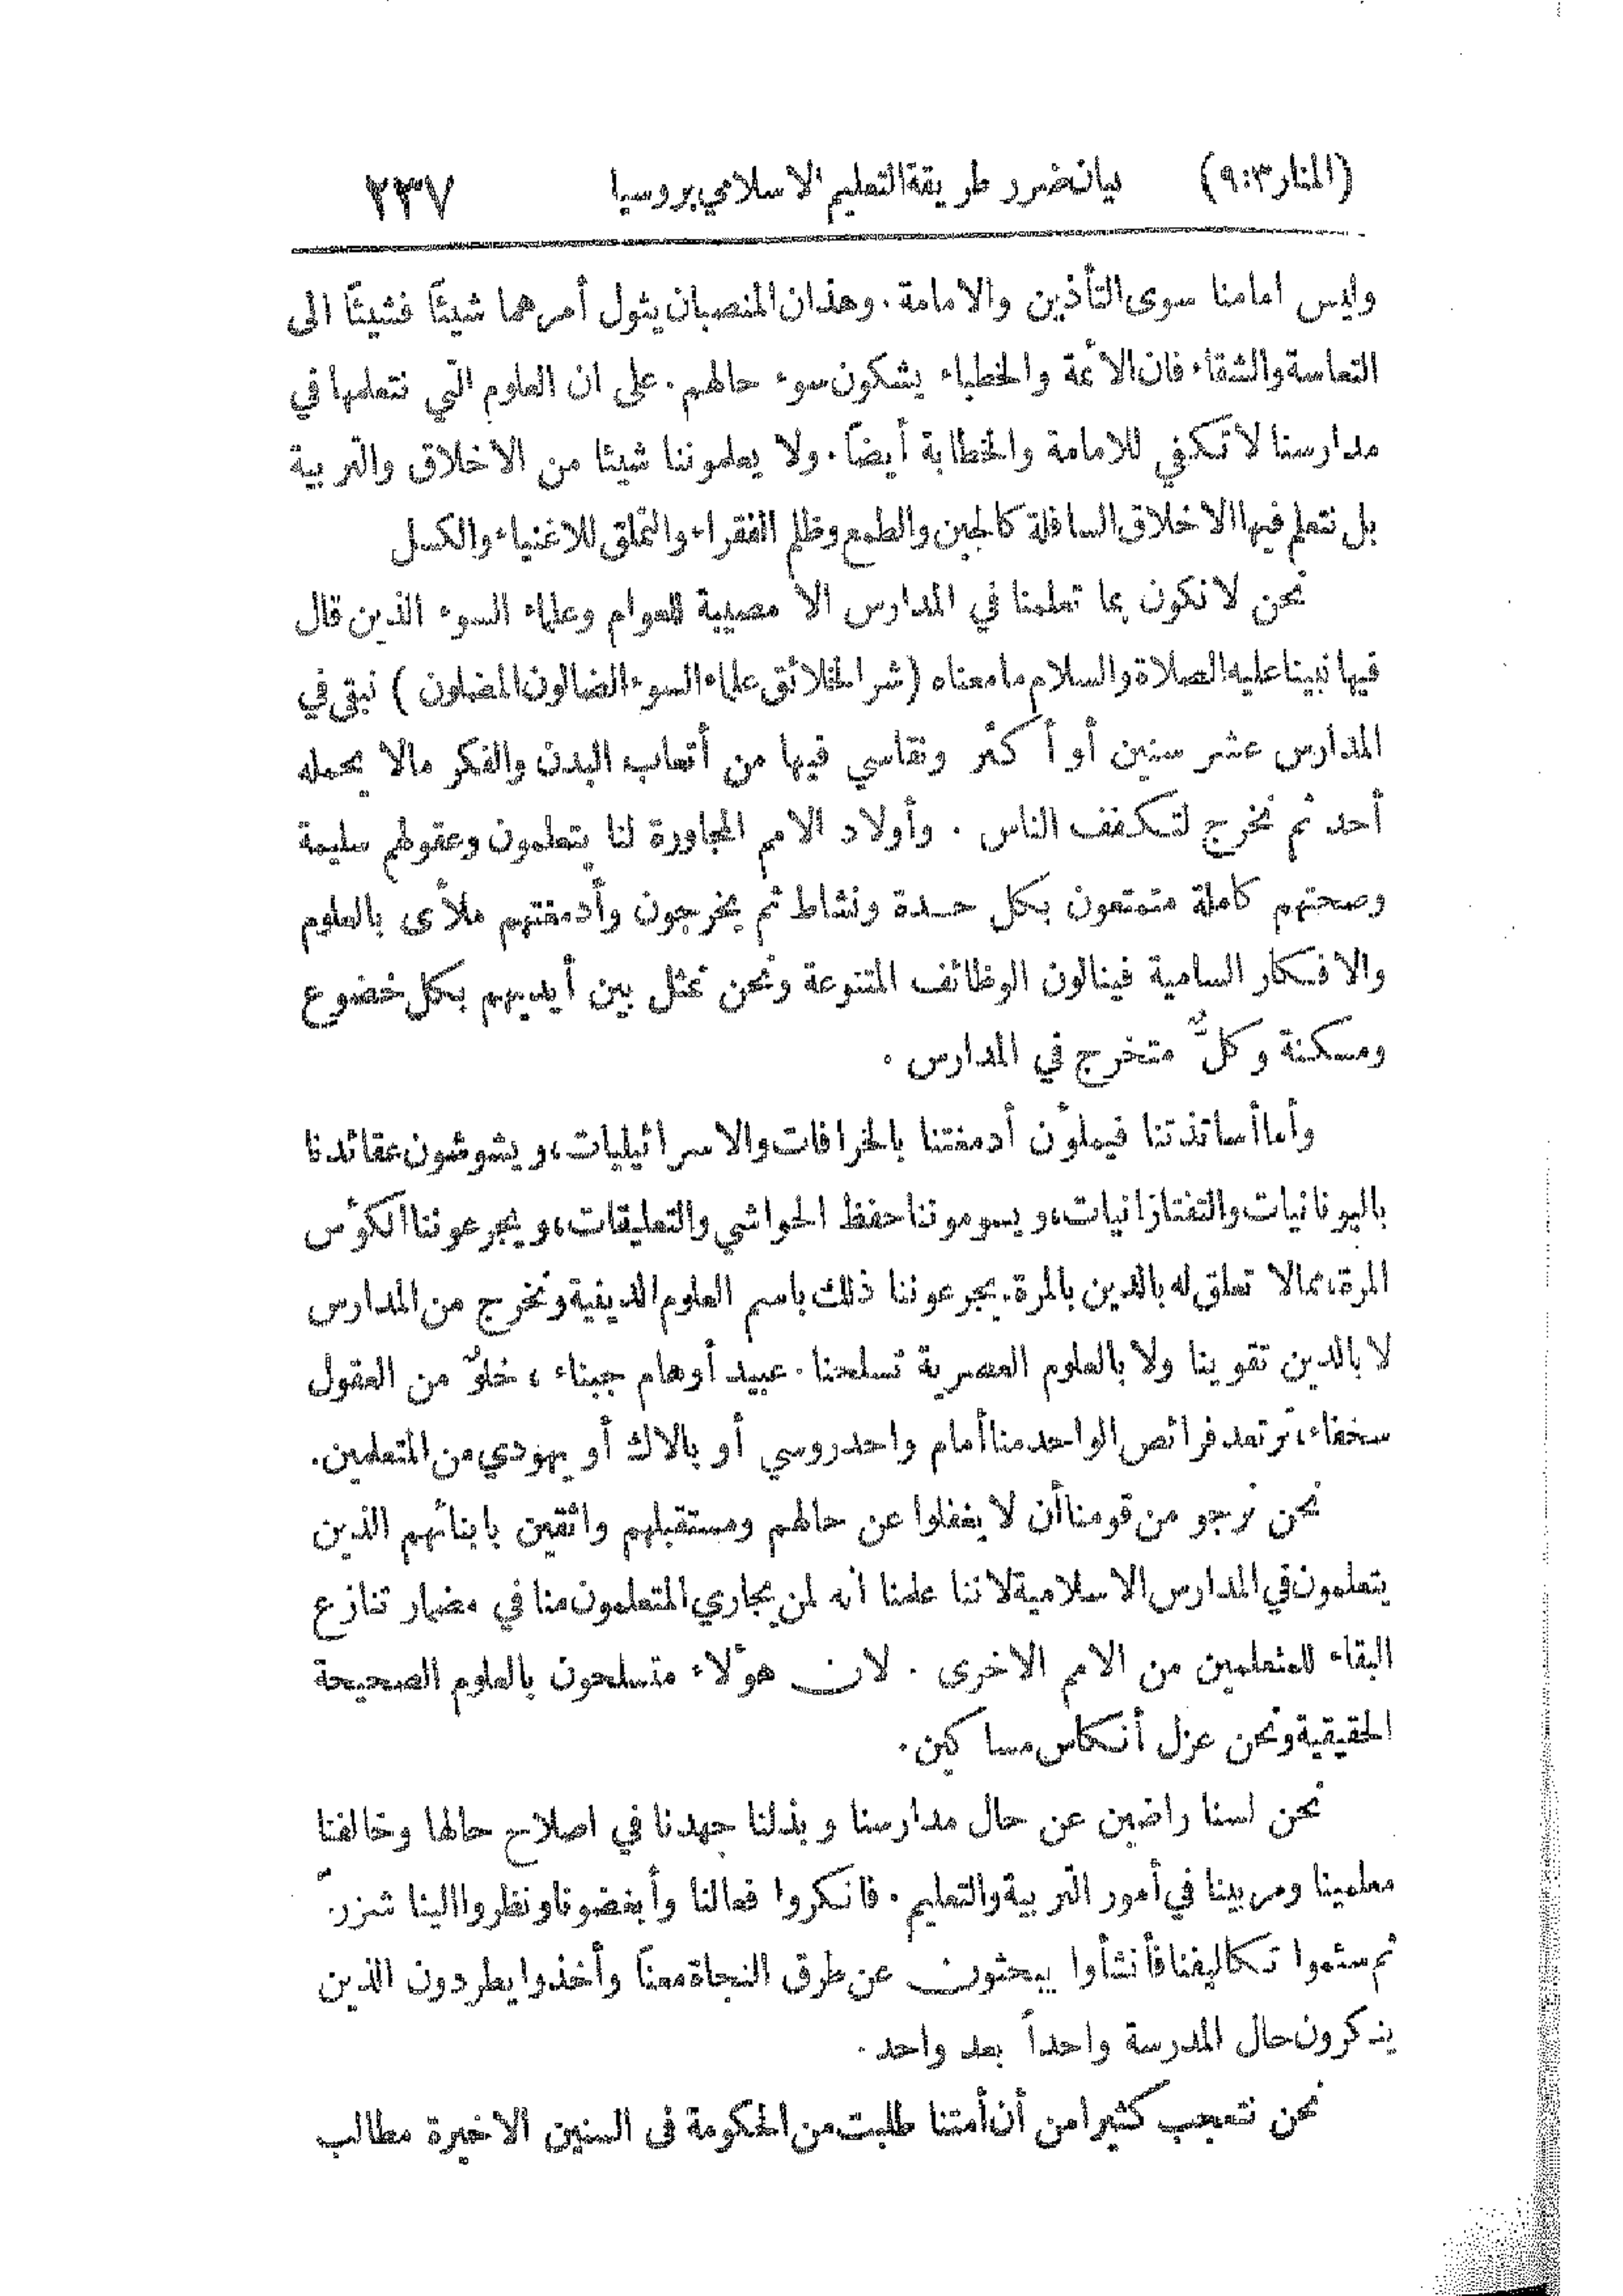 (المنار ٩:٣) بيان ضرر طريقة التعليم الاسلامي بروسيا ٢٣٧
وليس امامنا سوى التأذين والامامة. وهذان المنصبان يئول أمرهما شيئًا فشيئًا الى
التعاسة والشقاء فان الأئمة والخطباء يشكون سوء حالهم. على ان العلوم التي نتعلمها في
مدارسنا لا تكفي للامامة والخطابة أيضًا. ولا يعلموننا شيئا من الاخلاق والتربية
بل نتعلم فيها الاخلاق السافلة كالجبن والطمع وظلم الفقراء والتملق للاغنياء والكسل
نحن لا نكون بما تعلمنا في المدارس الا مصيبة للعوام وعلماء السوء الذين قال
فيها نبينا عليه الصلاة والسلام ما معناه (شر الخلائق علماء السوء الضالون المضلون) نبقى في
المدارس عشر سنين أو أكثر ونقاسي فيها من أتعاب البدن والفكر مالا يحمله
أحد ثم نخرج لتكفف الناس . وأولاد الامم المجاورة لنا يتعلمون وعقولهم سليمة
وصحتهم كاملة متمتعون بكل حدة ونشاط ثم يخرجون وأدمغتهم ملأى بالعلوم
والافكار السامية فينالون الوظائف المتنوعة ونحن نمثل بين أيديهم بكل خضوع
ومسكنة وكلٌّ متخرج في المدارس .
وأما أساتذتنا فيملؤن أدمغتنا بالخرافات والاسرائيليات، ويشوشون عقائدنا
باليونانيات والتفتازانيات، ويسوموننا حفظ الحواشي والتعليقات، ويجرعوننا الكؤس
المرة، مما لا تعلق له بالدين بالمرة. يجرعوننا ذلك باسم العلوم الدينية ونخرج من المدارس
لا بالدين تقوينا ولا بالعلوم العصرية تسلحنا. عبيد أوهام جبناء ، خلوٌ من العقول
سخفاء، ترتعد فرائص الواحد منا أمام واحد روسي أو بالاك أو يهودي من المتعلمين.
نحن نرجو من قومنا أن لا يغفلوا عن حالهم ومستقبلهم واثقين بابنائهم الذين
يتعلمون في المدارس الاسلامية لاننا علمنا انه لن يجاري المتعلمون منا في مضمار تنازع
البقاء للمتعلمين من الامم الاخرى . لان هؤلاء متسلحون بالعلوم الصحيحة
الحقيقية ونحن عزل أنكاس مساكين.
نحن لسنا راضين عن حال مدارسنا وبذلنا جهدنا في اصلاح حالها وخالفنا
معلمينا ومربينا في أمور التربية والتعليم. فانكروا فعالنا وأبغضونا ونظروا الينا شزرً.
ثم سئموا تكاليفنا فأنشأوا يبحثون عن طرق النجاة منّا وأخذوا يطردون الذين
يذكرون حال المدرسة واحداً بعد واحد.
نحن نتعجب كثيرا من أن أمتنا طلبت من الحكومة فى السنين الاخيرة مطالب